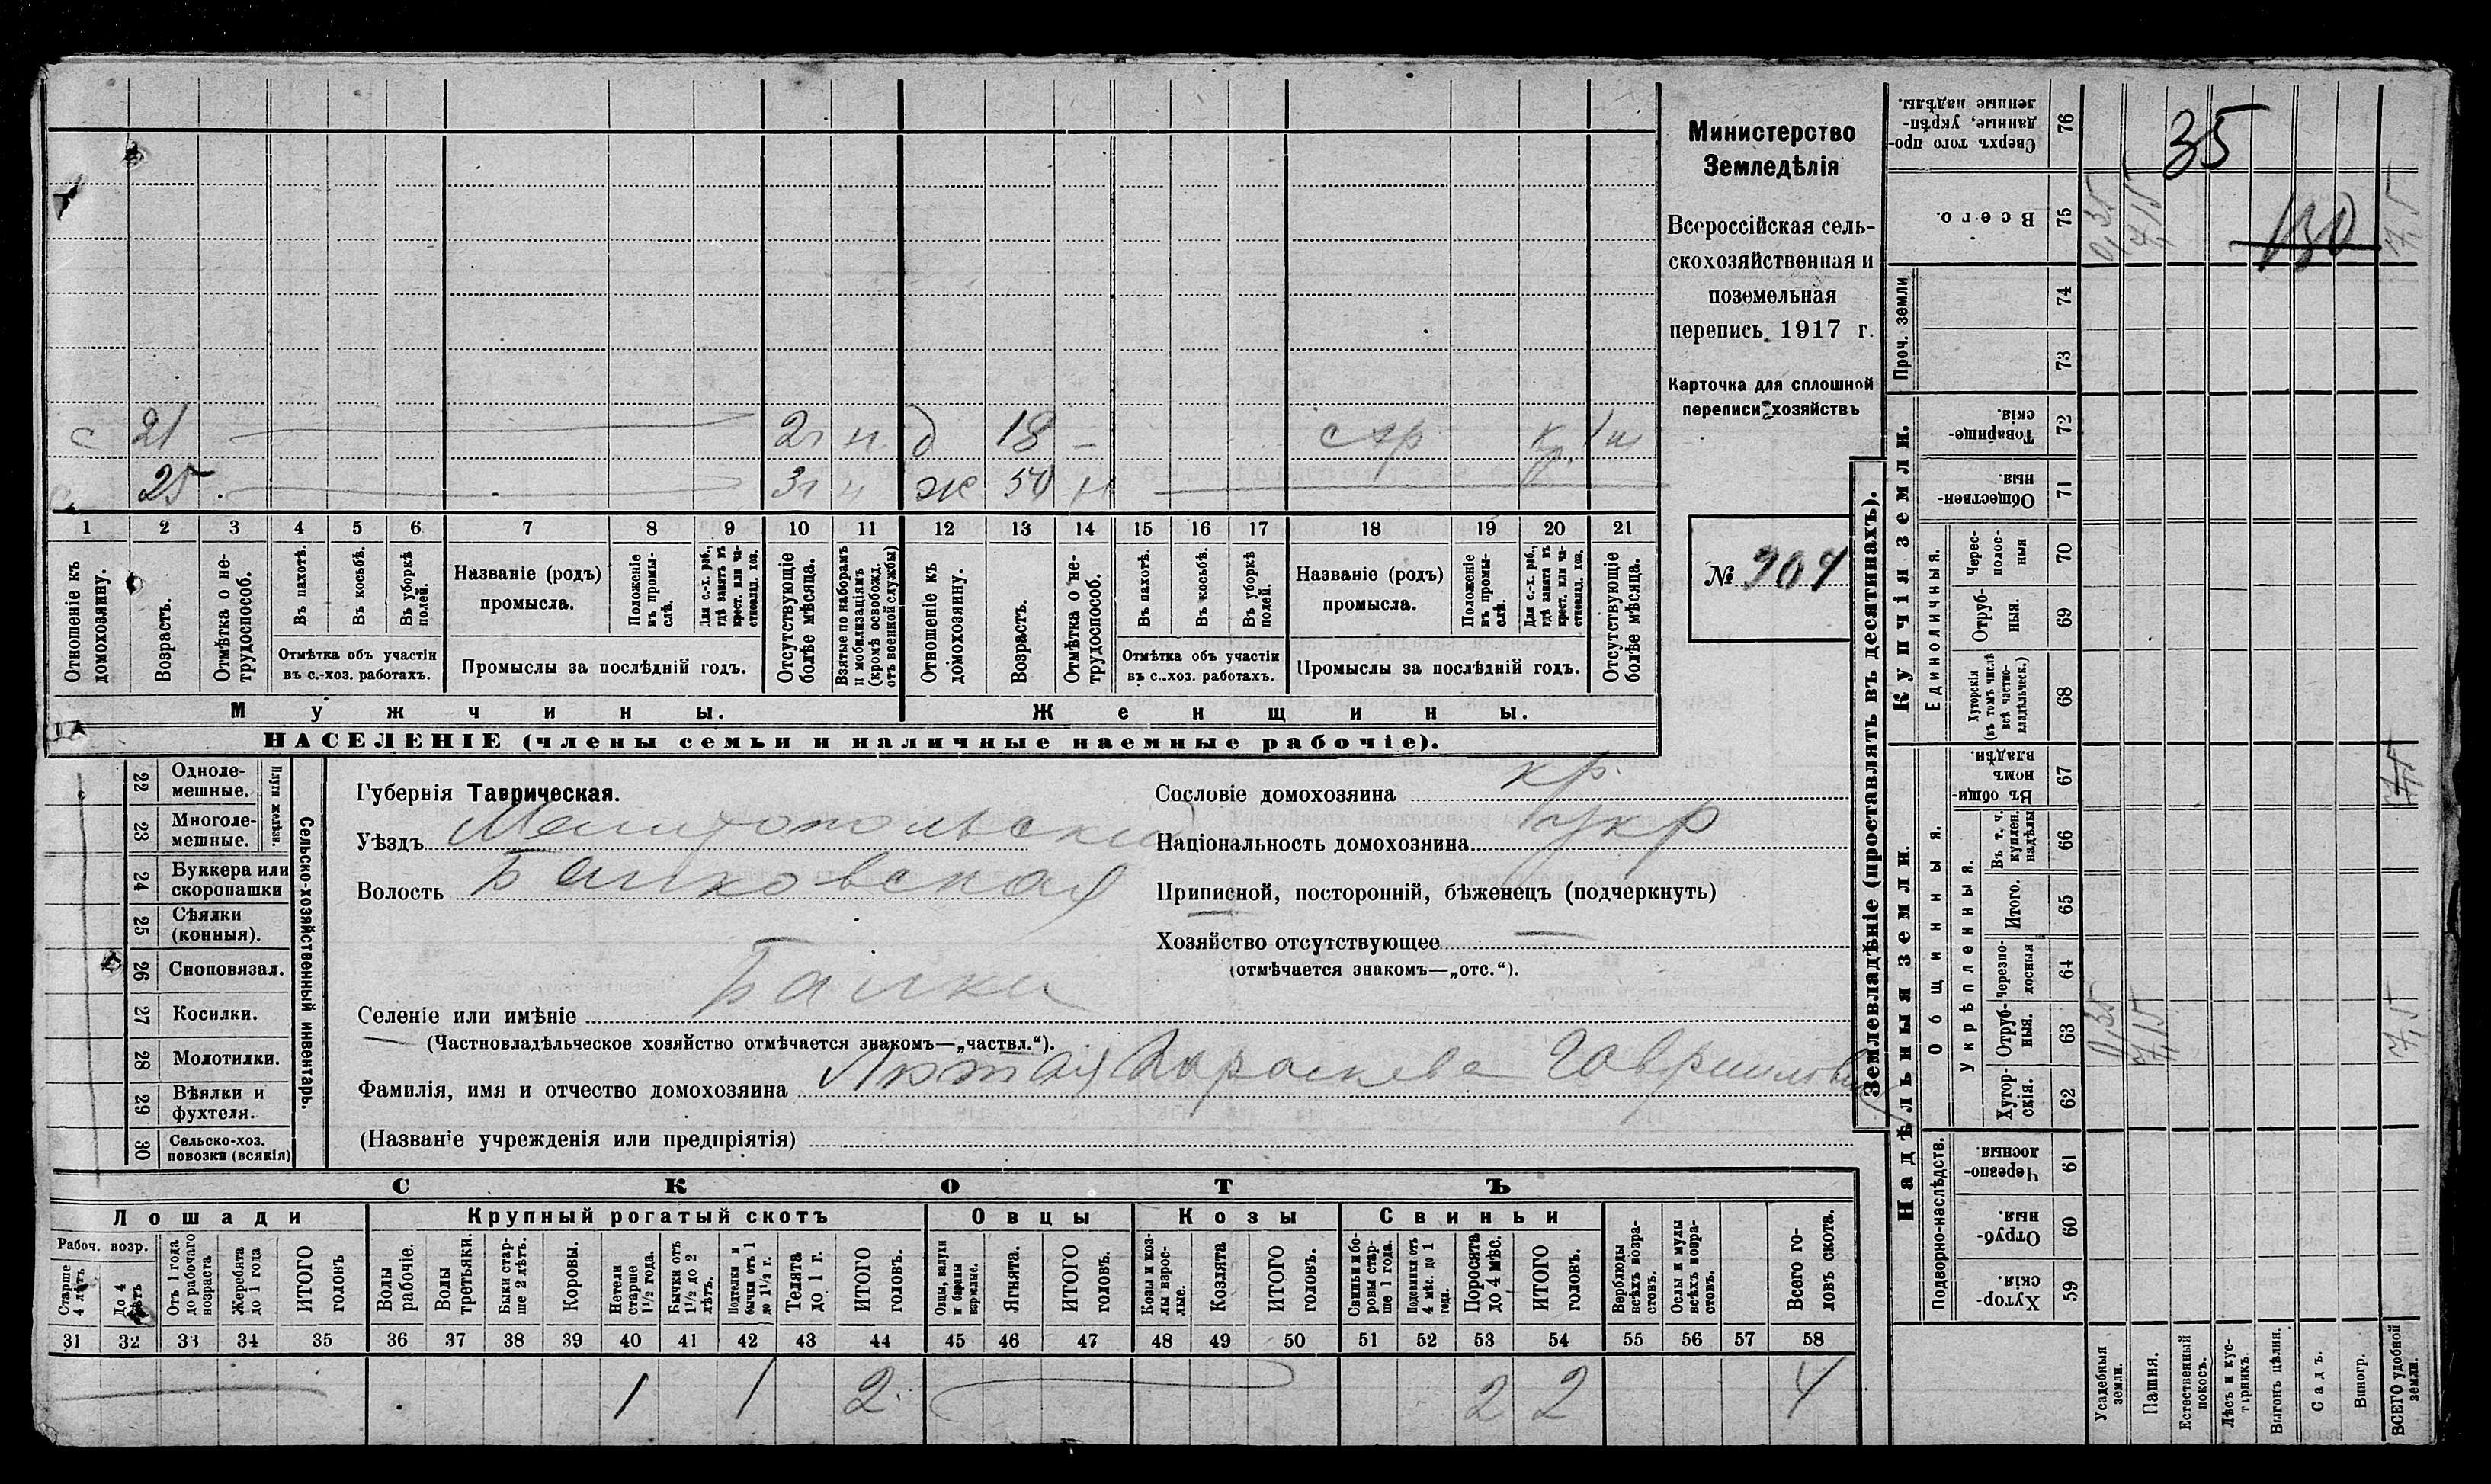 Министерство
Земледѣлія
Всероссійская сель-
скохозяйственная и
поземельная
перепись 1917 г.
Карточка для сплошной
переписи хозяйствъ
№ 904
с 21 2г н д 18 — кр 1н
25 3г н ж 50 н
1 2 3 4 5 6 7 8 9 10 11 12 13 14 15 16 17 18 19 20 21
Отношеніе къ домохозяину.
Возрастъ.
Отмѣтка о не-трудоспособ.
Въ пахотѣ.
Въ косьбѣ.
Въ уборкѣ полей.
Отмѣтка объ участіи
въ с.-хоз. работахъ.
Названіе (родъ)
промысла.
Положеніе въ промы-слѣ.
Для с.-х. раб., гдѣ занятъ въ крест. или ча-стновлад. хоз.
Промыслы за послѣдній годъ.
Отсутствующіе болѣе мѣсяца.
Взятые по наборамъ и мобилизаціямъ (кромѣ освобожд. отъ военной службы)
Отношеніе къ домохозяину.
Возрастъ.
Отмѣтка о не-трудоспособ.
Въ пахотѣ.
Въ косьбѣ.
Въ уборкѣ полей.
Отмѣтка объ участіи
въ с.-хоз. работахъ.
Названіе (родъ)
промысла.
Положеніе въ промы-слѣ.
Для с.-х. раб., гдѣ занята въ крест. или ча-стновлад. хоз.
Промыслы за послѣдній годъ.
Отсутствующіе болѣе мѣсяца.
Мужчины. Женщины.
НАСЕЛЕНІЕ (члены семьи и наличные наемные рабочіе).
22 Одноле-мешные.
23 Многоле-мешные.
Плуги желѣзн.
24 Буккера или скоропашки
25 Сѣялки (конныя).
26 Сноповязал.
27 Косилки.
28 Молотилки.
29 Вѣялки и фухтеля.
30 Сельско-хоз. повозки (всякія)
Сельско-хозяйственный инвентарь.
Губернія Таврическая.
Уѣздъ Мелитопольский
Волость Балковская
Селеніе или имѣніе Балки
(Частновладѣльческое хозяйство отмѣчается знакомъ—„частвл.“).
Фамилія, имя и отчество домохозяина Лютая Параскева Гавриловна
(Названіе учрежденія или предпріятія)
Сословіе домохозяина кр.
Національность домохозяина укр
Приписной, посторонній, бѣженецъ (подчеркнуть)
Хозяйство отсутствующее —
(отмѣчается знакомъ—„отс.“).
СКОТЪ
Лошади Крупный рогатый скотъ Овцы Козы Свиньи
Рабоч. возр.
Старше 4 лѣтъ
До 4 лѣтъ
Отъ 1 года до рабочаго возраста
Жеребята до 1 года
ИТОГО головъ
Волы рабочіе.
Волы третьяки.
Быки стар-ше 2 лѣтъ.
Коровы.
Нетели старше 1½ года.
Бычки отъ 1½ до 2 лѣтъ.
Подтелки и бычки отъ 1 до 1½ г.
Телята до 1 г.
ИТОГО головъ.
Овцы, валухи и бараны взрослые.
Ягнята.
ИТОГО головъ.
Козы и коз-лы взрос-лые.
Козлята
ИТОГО головъ.
Свиньи и бо-ровы стар-ше 1 года.
Подсвинки отъ 4 мѣс. до 1 года.
Поросята до 4 мѣс.
ИТОГО головъ.
Верблюды всѣхъ возра-стовъ.
Ослы и мулы всѣхъ возра-стовъ.
Всего го-ловъ скота.
31 32 33 34 35 36 37 38 39 40 41 42 43 44 45 46 47 48 49 50 51 52 53 54 55 56 57 58
1 1 2 2 2 4
Землевладѣніе (проставлять въ десятинахъ).
Надѣльныя земли.
Купчія земли.
Проч. земли
Подворно-наслѣдств.
Общинныя.
Укрѣпленныя.
Единоличныя.
Сверхъ того про-данные, укрѣп-ленные надѣлы. 76 35
Всего. 75 0,35 7,15 130 7,5
74
73
Товарище-скія. 72
Обществен-ныя. 71
Черес-полос-ныя 70
Отруб-ныя. 69
Хуторскія (въ томъ числѣ всѣ частно-владѣльческ.) 68
Въ общи-номъ владѣн. 67 7,5
Въ т. ч. куплен. надѣлы 66
Итого. 65
Черезпо-лосныя 64
Отруб-ныя. 63 0,35 7,15 7,5
Хутор-скія. 62
Черезпо-лосныя. 61
Отруб-ныя. 60
Хутор-скія. 59
Усадебныя земли.
Пашня.
Естественный покосъ.
Лѣсъ и кус-тарникъ.
Выгонъ цѣлин.
Садъ.
Виногр.
ВСЕГО удобной земли.